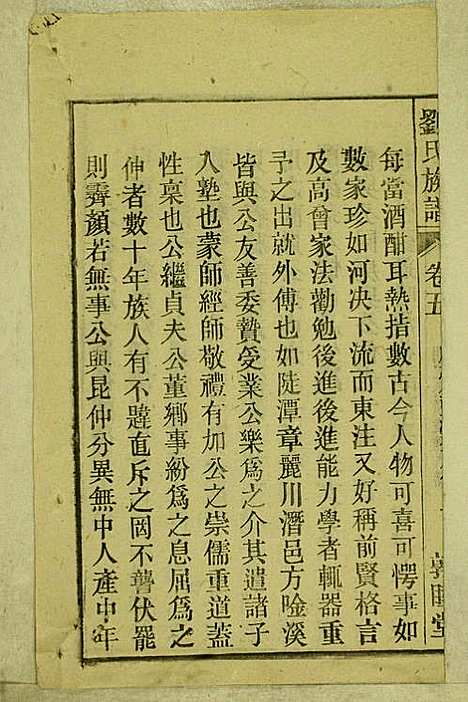 劉氏族譜
卷五
每當酒酣耳熱指數古今人物可喜可愕事如
數家珍如河決下流而東注又好稱前賢格言
及高曾家法勸勉後進後進能力學者輒器重
予之出就外傅也如陡潭章麗川潛邑方唫溪
皆與公友善委贄受業公樂爲之介其遣諸子
入塾也蒙師經師敬禮有加公之崇儒重道蓋
性稟也公繼貞夫公董鄉事紛爲之息屈爲之
伸者數十年族人有不韙直斥之罔不讋伏罷
則霽顏若無事公與昆仲分異無中人產中年